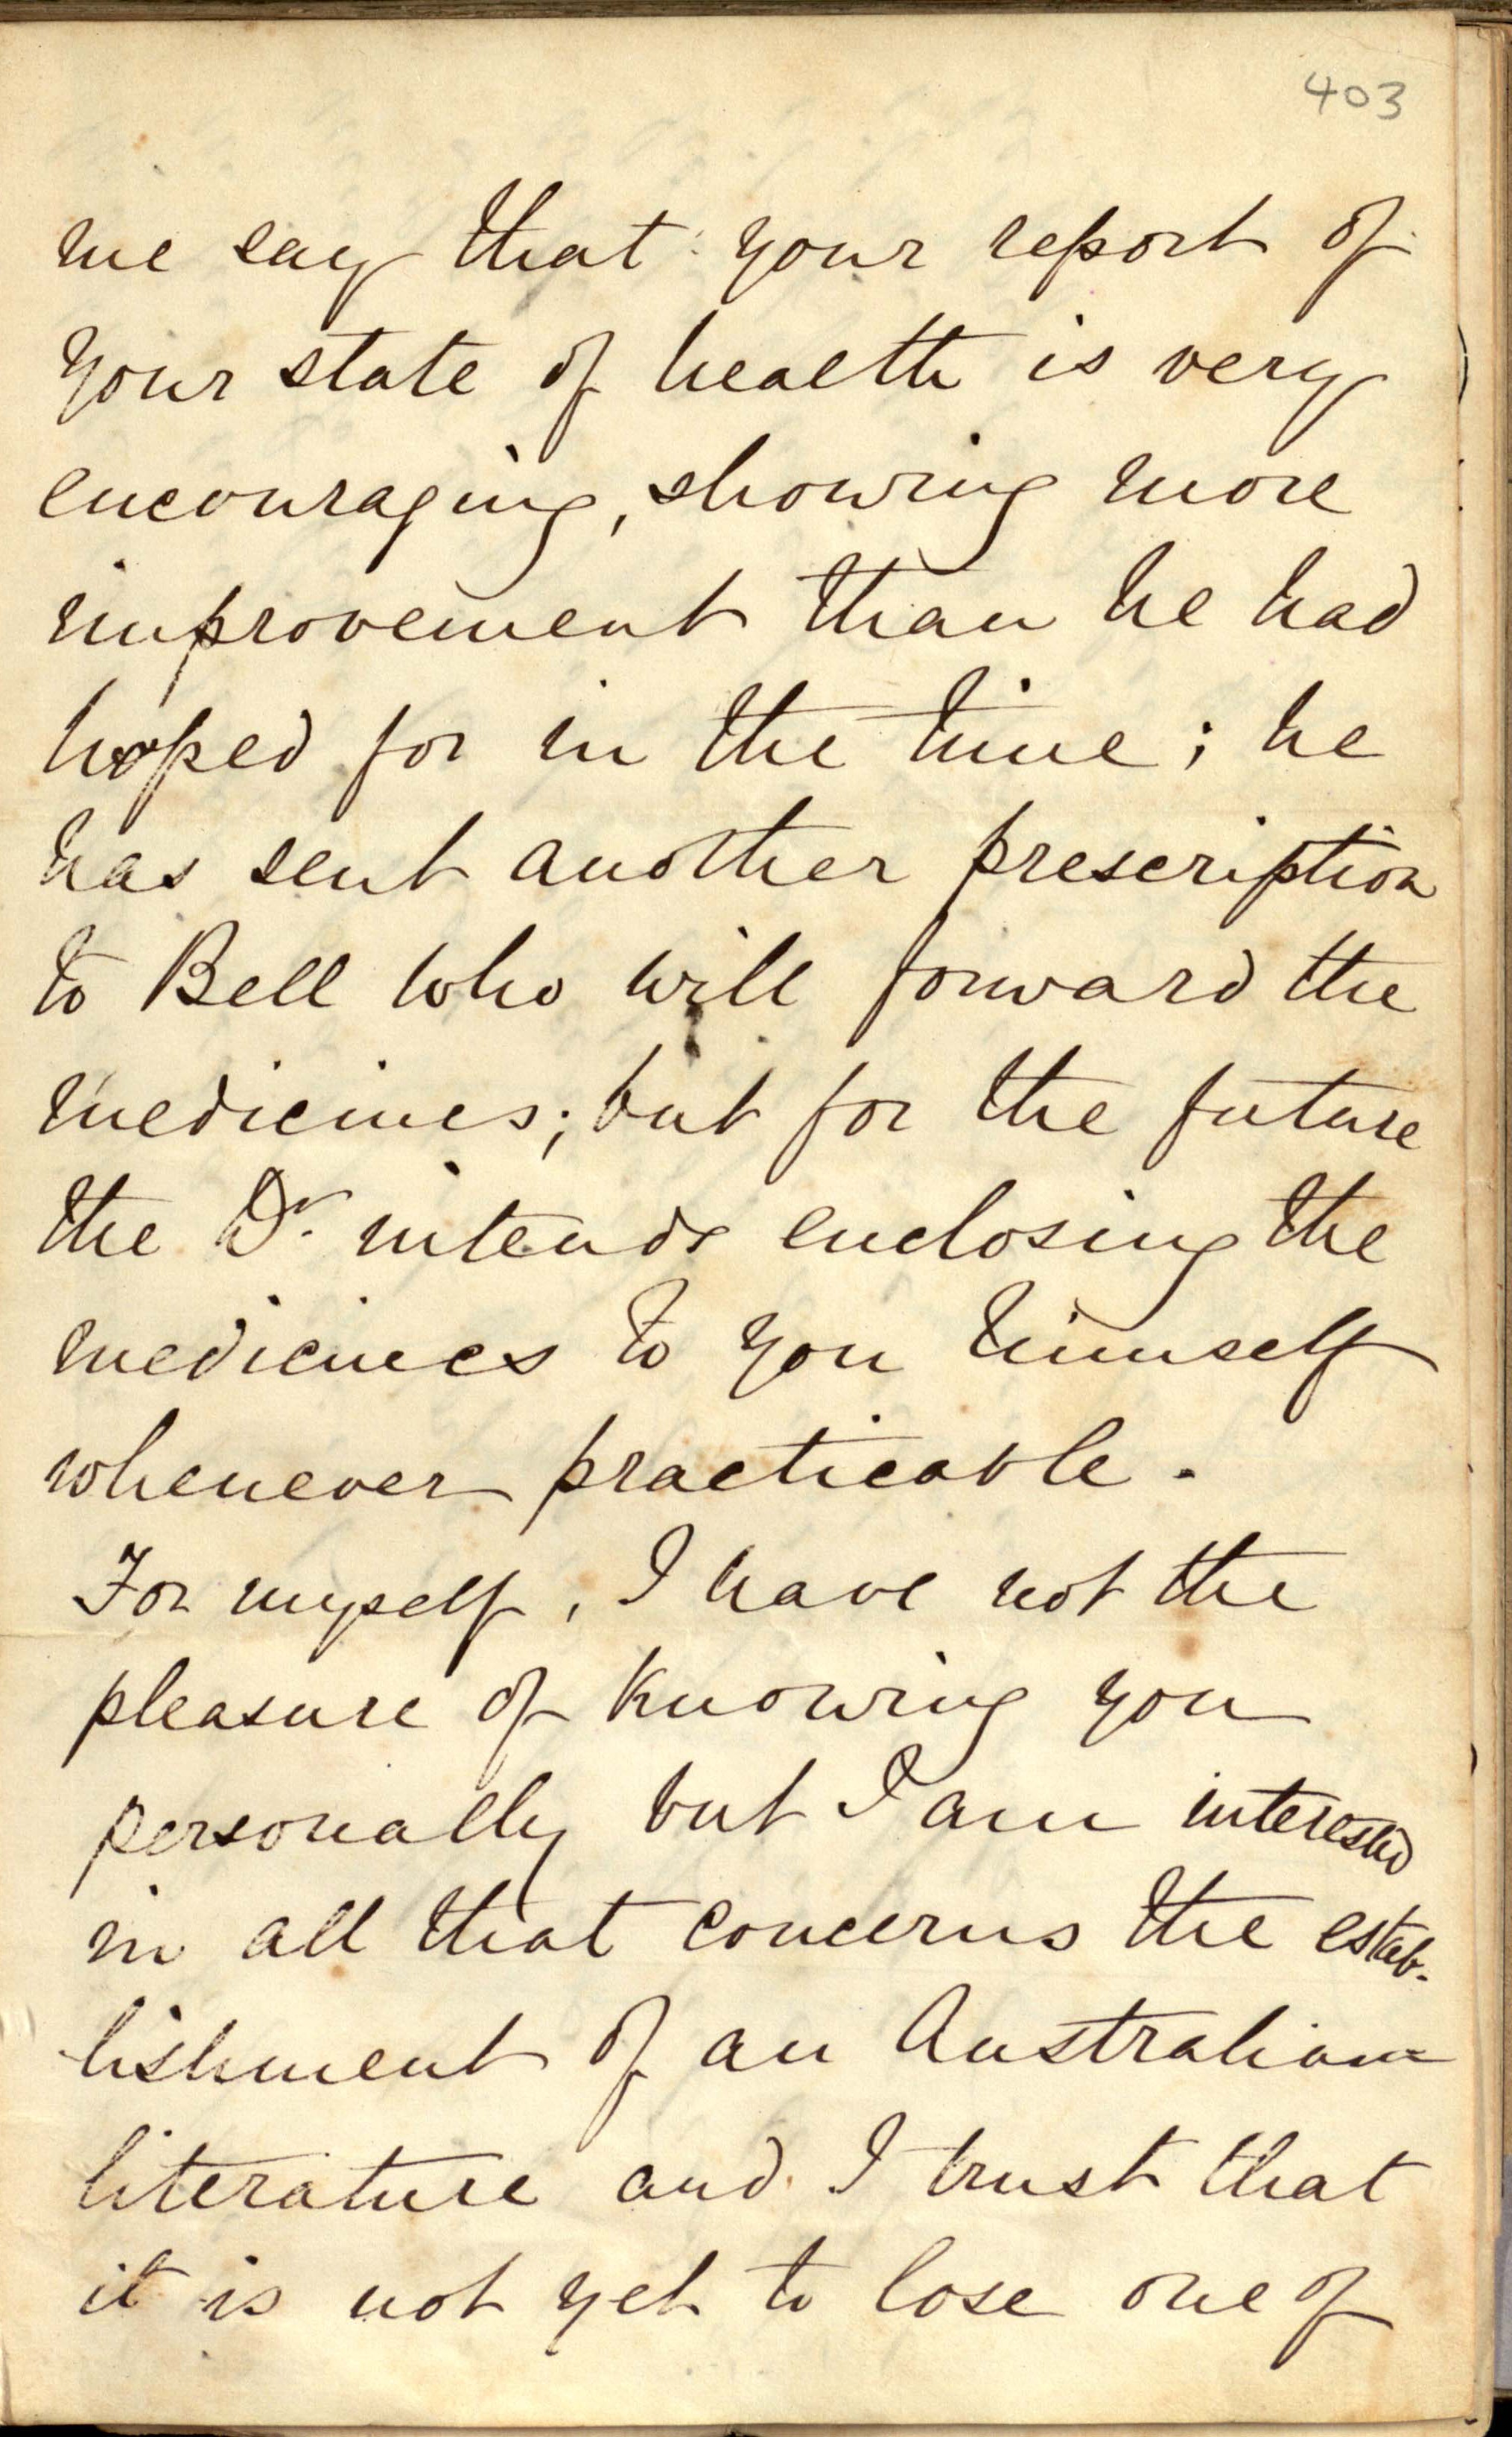 403
me say that your report of
your state of health is very
encouraging, showing more
improvement than he had
hoped for in the time; he
has sent another prescription
to Bell who will forward the
medicines; but for the future
the Dr. intends enclosing the
medicines to you himself
whenever practicable.
For myself, I have not the
pleasure of knowing you
personally but I am interested
in all that concerns the estab-
lishment of an Australian
literature and I trust that
it is not yet to lose one of